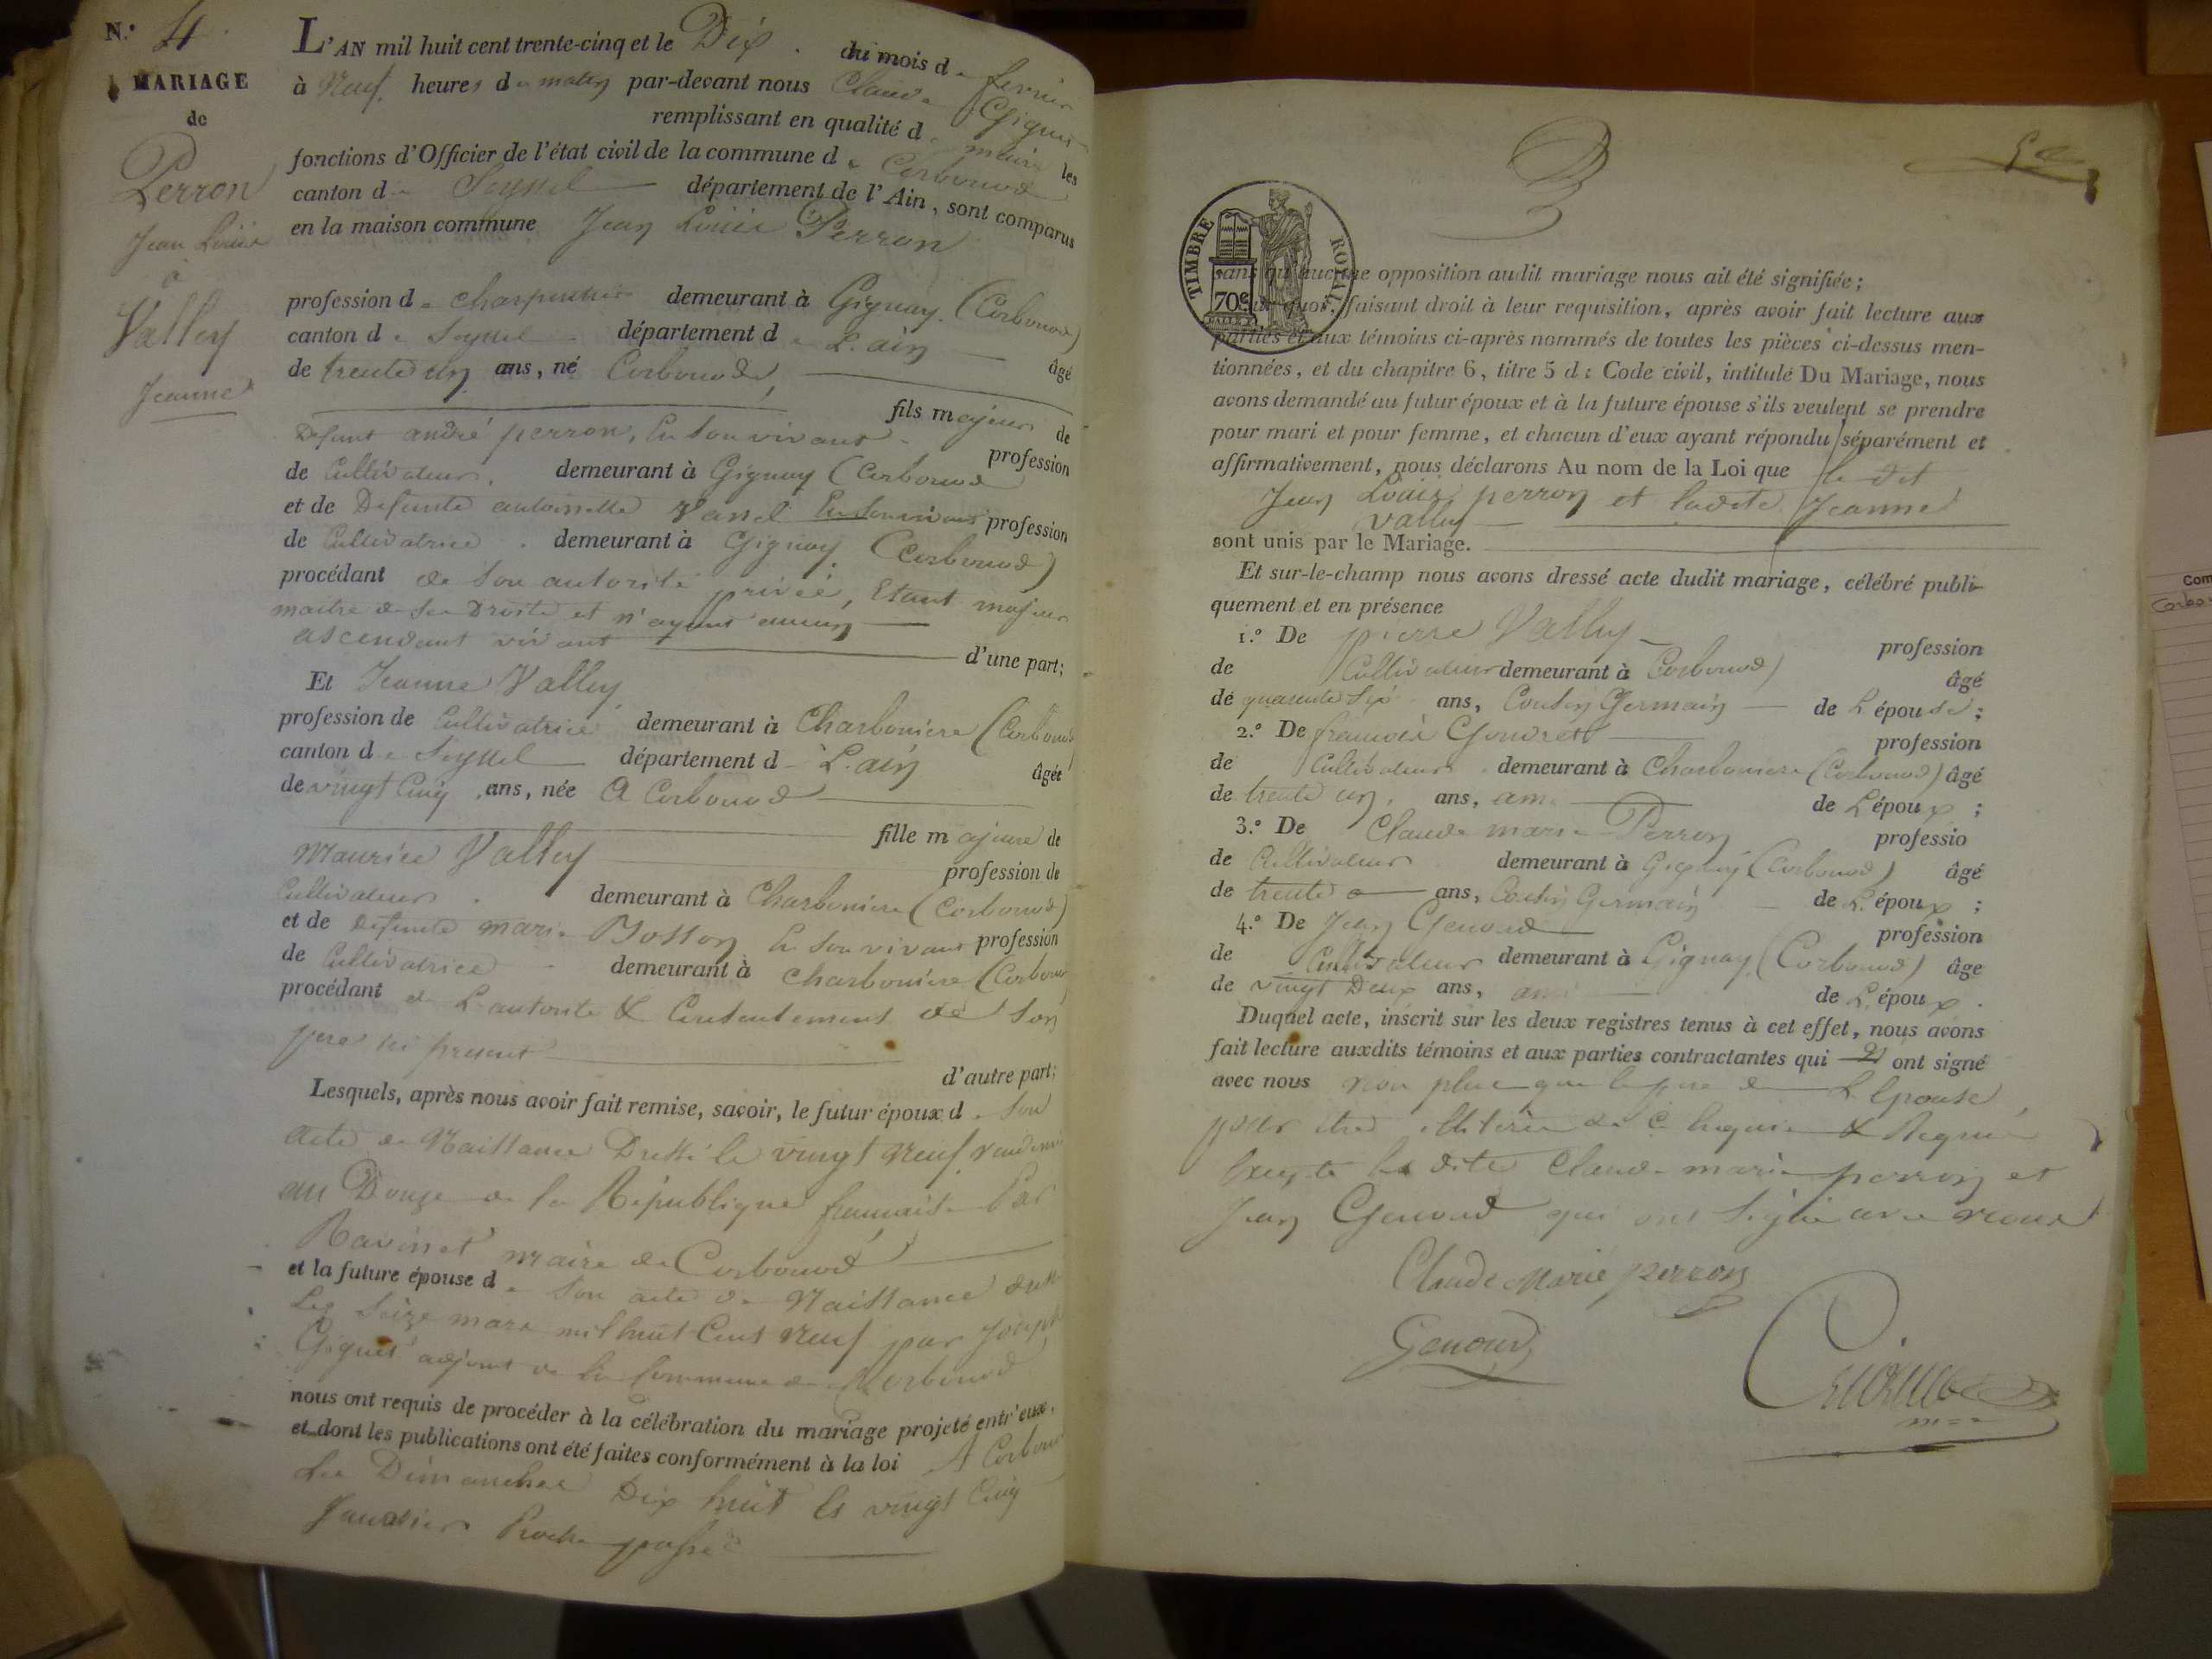 N.o 4
MARIAGE
de
Perron
Jean Louis
à
Valley
Jeanne
L'AN mil huit cent trente-cinq et le Dix du mois de fevrier
à Neuf heures du matin par-devant nous Claude
remplissant en qualité de maire les
fonctions d'Officier de l'état civil de la commune de Corbonod
canton de Seyssel département de l'Ain, sont comparus
en la maison commune Jean Louis Perron
profession de charpentier demeurant à Gignay (Corbonod)
canton de Seyssel département de L'ain âgé
de trente un ans, né Corbonod,
fils majeur de
Defunt andré perron, En Son vivant profession
de Cultivateur, demeurant à Gignay (Corbonod
et de Defunte antoinette Vassel En Son vivant profession
de Cultivatrice demeurant à Gignay (Corbonod)
procédant de Son autorité privée, Etant majeur
maitre de Ses Droits et n'ayant aucun
ascendant vivant d'une part;
Et Jeanne Valley
profession de Cultivatrice demeurant à Charboniere (Corbonod
canton de Seyssel département de L'ain âgée
de vingt Cinq ans, née A Corbonod
fille majeure de
Maurice Valley profession de
Cultivateur demeurant à Charboniere (Corbonod)
et de defunte marie Bosson En Son vivant profession
de Cultivatrice demeurant à Charboniere (Corbonod
procédant de L'autorité & Consentement de Son
pere ici present
d'autre part;
Lesquels, après nous avoir fait remise, savoir, le futur époux de Son
acte de Naissance Dressé le vingt Neuf
an Douze de la République française Par
Ravinet maire de Corbonod
et la future épouse de Son acte de Naissance dressé
Le Seize mars mil huit Cent Neuf par Joseph
adjoint de la Commune de Corbonod
nous ont requis de procéder à la célébration du mariage projeté entr'eux,
et dont les publications ont été faites conformément à la loi A Corbonod
Les Dimanches Dix huit & vingt Cinq
Janvier Proche passé
sans qu'aucune opposition audit mariage nous ait été signifiée;
TIMBRE ROYAL
70c
faisant droit à leur requisition, après avoir fait lecture aux
parties et aux témoins ci-après nommés de toutes les pièces ci-dessus men-
tionnées, et du chapitre 6, titre 5 d: Code civil, intitulé Du Mariage, nous
avons demandé au futur époux et à la future épouse s'ils veulent se prendre
pour mari et pour femme, et chacun d'eux ayant répondu séparément et
affirmativement, nous déclarons Au nom de la Loi que le dit
Jean Louis perron et ladite Jeanne
Valley
sont unis par le Mariage.
Et sur-le-champ nous avons dressé acte dudit mariage, célébré publi-
quement et en présence
1.o De pierre Valley profession
de Cultivateur demeurant à Corbonod) âgé
de quarante Six ans, Cousin Germain de L'épouse;
2.o De francois profession
de Cultivateur demeurant à Charboniere (Corbonod) âgé
de trente un, ans, ami de L'époux;
3.o De Claude marie Perron professio
de Cultivateur demeurant à Gignay (Corbonod) âgé
de trente ans, Cousin Germain de L'époux;
4.o De Jean Genoud profession
de Cultivateur demeurant à Gignay (Corbonod) âgé
de vingt Deux ans, ami de L'époux.
Duquel acte, inscrit sur les deux registres tenus à cet effet, nous avons
fait lecture auxdits témoins et aux parties contractantes qui N ont signé
avec nous Non plus que le pere de L'Epouse,
pour être illiterés de Ce Enquis & Requis
Excepté les dits Claude marie perron et
Jean Genoud qui ont Signé avec nous
Claude Marie perron
Genoud